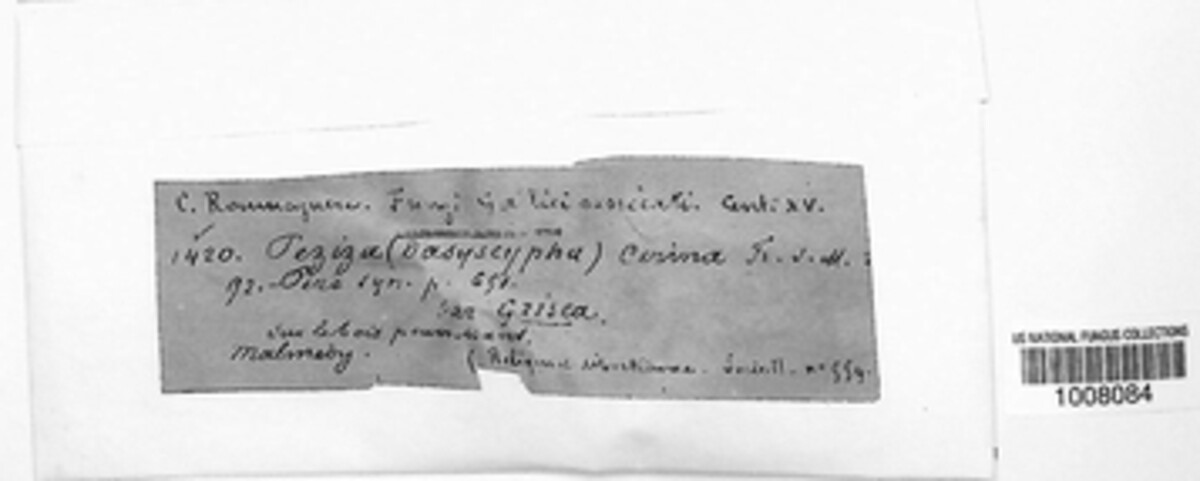 C. Roumeguere. Fungi Gallici exsiccati. Cent. XV.
1420. Peziza (Dasyscypha) Cerina Fr. S. M. 2
92. - Pers Syn. p. 651.
Var Grisea.
Sur le bois pourrissant.
Malmedy. (Reliquiae Libertianae. No 559.
US NATIONAL FUNGUS COLLECTIONS
1008084